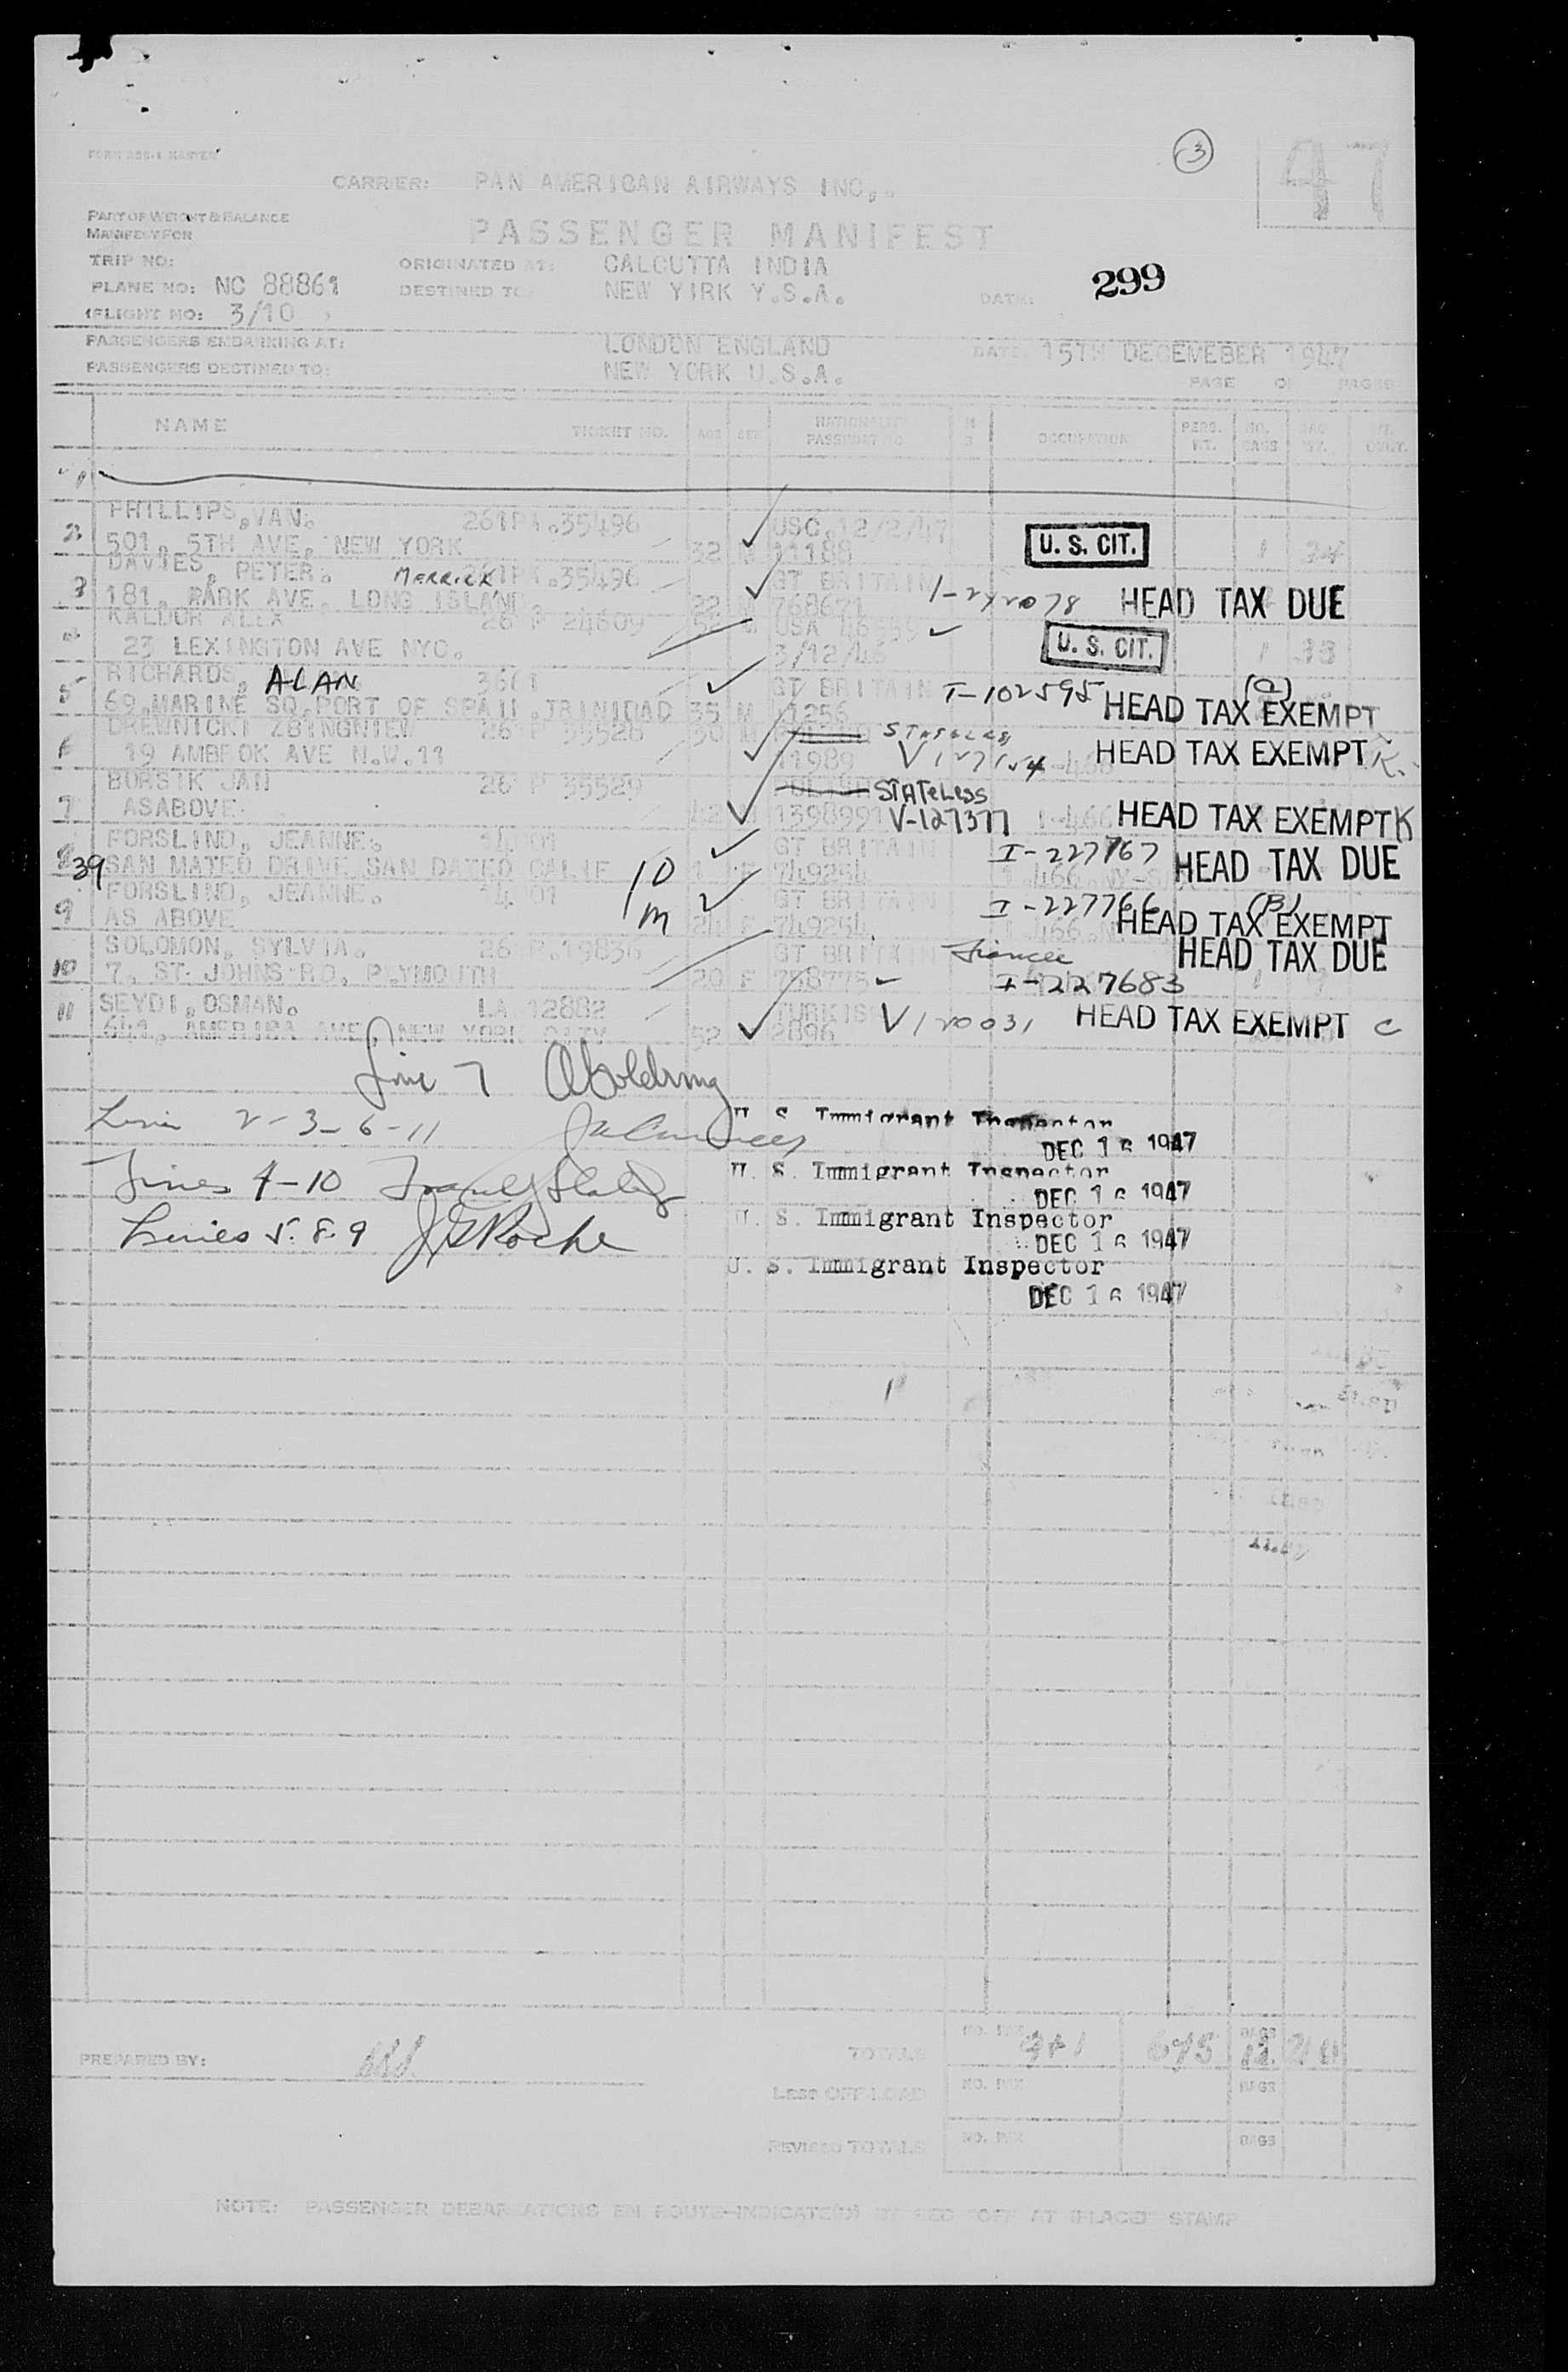 FORM 386-1 MASTER
3
47
CARRIER: PAN AMERICAN AIRWAYS INC.
PART OF WEIGHT & BALANCE
MANIFEST FOR
PASSENGER MANIFEST
TRIP NO:
ORIGINATED AT: CALCUTTA INDIA
PLANE NO: NC 88861
DESTINED TO: NEW YIRK Y.S.A.
DATE:
299
FLIGHT NO: 3/10
PASSENGERS EMBARKING AT: LONDON ENGLAND
DATE: 15TH DECEMEBER 1947
PASSENGERS DESTINED TO: NEW YORK U.S.A.
PAGE OF PAGES
NAME TICKET NO. AGE SEX NATIONALITY PASSPORT NO. OCCUPATION PERS. WT. NO. BAGS BAG WT.
1
2 PHILLIPS, VAN. 261P1.35496 USC. 12/2/47
501, 5TH AVE, NEW YORK 32 M 11188 U. S. CIT. 1 34
3 DAVIES, PETER. MERRICK 261P1.35496 GT BRITAIN
181, PARK AVE, LONG ISLAND 22 M 768671 HEAD TAX DUE
4 KALDOR ALEX 26 P 24609 USA
23 LEXINGTON AVE NYC. 3/12/46 U. S. CIT. 1 33
5 RICHARDS, ALAN 3601 GT BRITAIN I-102595 (a)
69, MARINE SQ. PORT OF SPAIN, TRINIDAD 35 M 41256 HEAD TAX EXEMPT
6 DREWNICKI ZBINGNIEW 26 P 35528 30 M STATELESS
19 AMBROK AVE N.W.11 11989 HEAD TAX EXEMPT K.
7 BORSIK JAN 26 P 35529 POLAND STATELESS
ASABOVE 42 M 1398991 V-127377 HEAD TAX EXEMPT K
8 FORSLIND, JEANNE. GT BRITAIN I-227767
39 SAN MATEO DRIVE SAN DATEO CALIF 10 1 F 749254 HEAD TAX DUE
m
9 FORSLIND, JEANNE. GT BRITAIN I-227766 (B)
AS ABOVE 24 F 749254 HEAD TAX EXEMPT
10 SOLOMON, SYLVIA. 26 P.19836 GT BRITAIN Fiancee HEAD TAX DUE
7, ST. JOHNS RD, PLYMOUTH 20 F 758775 I-227683
11 SEYDI, OSMAN. LA 12882 TURKISH
AMERICA AVE, NEW YORK CITY 52 2896 V120031 HEAD TAX EXEMPT C
Line 7 A Goldring
U. S. Immigrant Inspector
DEC 16 1947
Line 2-3-6-11
U. S. Immigrant Inspector
DEC 16 1947
Lines 4-10
U. S. Immigrant Inspector
DEC 16 1947
Lines 5.8.9 J G Roche
U. S. Immigrant Inspector
DEC 16 1947
PREPARED BY:
TOTALS NO. PAX 9+1 675 BAGS
LESS OFF-LOAD NO. PAX BAGS
REVISED TOTALS NO. PAX BAGS
NOTE: PASSENGER DEBARKATIONS EN ROUTE-INDICATE(D) BY RED "OFF AT (PLACE)" STAMP